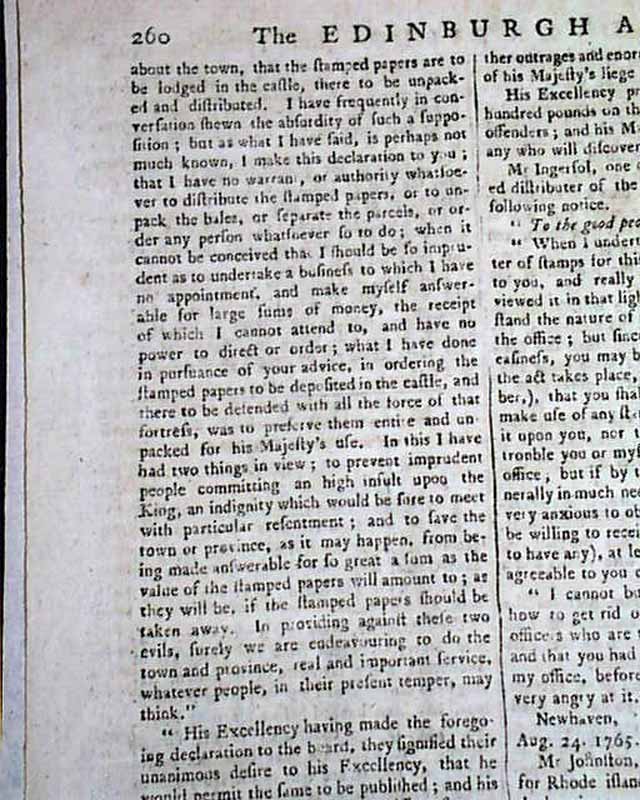 260 The EDINBURGH A
about the town, that the ſtamped papers are to
be lodged in the caſtle, there to be unpack-
ed and diſtributed. I have frequently in con-
verſation ſhewn the abſurdity of ſuch a ſuppo-
ſition; but as what I have ſaid, is perhaps not
much known, I make this declaration to you;
that I have no warrant, or authority whatſoe-
ver to diſtribute the ſtamped papers, or to un-
pack the bales, or ſeparate the parcels, or or-
der any perſon whatſoever ſo to do; when it
cannot be conceived that I ſhould be ſo impru-
dent as to undertake a buſineſs to which I have
no appointment, and make myſelf anſwer-
able for large ſums of money, the receipt
of which I cannot attend to, and have no
power to direct or order; what I have done
in purſuance of your advice, in ordering the
ſtamped papers to be depoſited in the caſtle, and
there to be defended with all the force of that
fortreſs, was to preſerve them entire and un-
packed for his Majeſty's uſe. In this I have
had two things in view; to prevent imprudent
people committing an high inſult upon the
King, an indignity which would be ſure to meet
with particular reſentment; and to ſave the
town or province, as it may happen, from be-
ing made anſwerable for ſo great a ſum as the
value of the ſtamped papers will amount to; as
they will be, if the ſtamped papers ſhould be
taken away. In providing againſt theſe two
evils, ſurely we are endeavouring to do the
town and province, real and important ſervice,
whatever people, in their preſent temper, may
think."
" His Excellency having made the forego-
ing declaration to the board, they ſignified their
unanimous deſire to his Excellency, that he
would permit the ſame to be publiſhed; and his
ther outrages and enor
of his Majeſty's liege
His Excellency pr
hundred pounds on th
offenders; and his M
any who will diſcover
Mr Ingerſol, one o
ed diſtributer of the
following notice.
" To the good peo
" When I undert
ter of ſtamps for this
to you, and really
viewed it in that ligh
ſtand the nature of
the office; but ſince
eaſineſs, you may b
the act takes place,
ber,), that you ſhal
make uſe of any ſt
it upon you, nor t
trouble you or myſ
office, but if by t
nerally in much nee
very anxious to ob
be willing to recei
to have any), at le
agreeable to you o
" I cannot bu
how to get rid o
officers who are
and that you had
my office, before
very angry at it.
Newhaven,
Aug. 24. 1765.
Mr Johnſton,
for Rhode iſlan